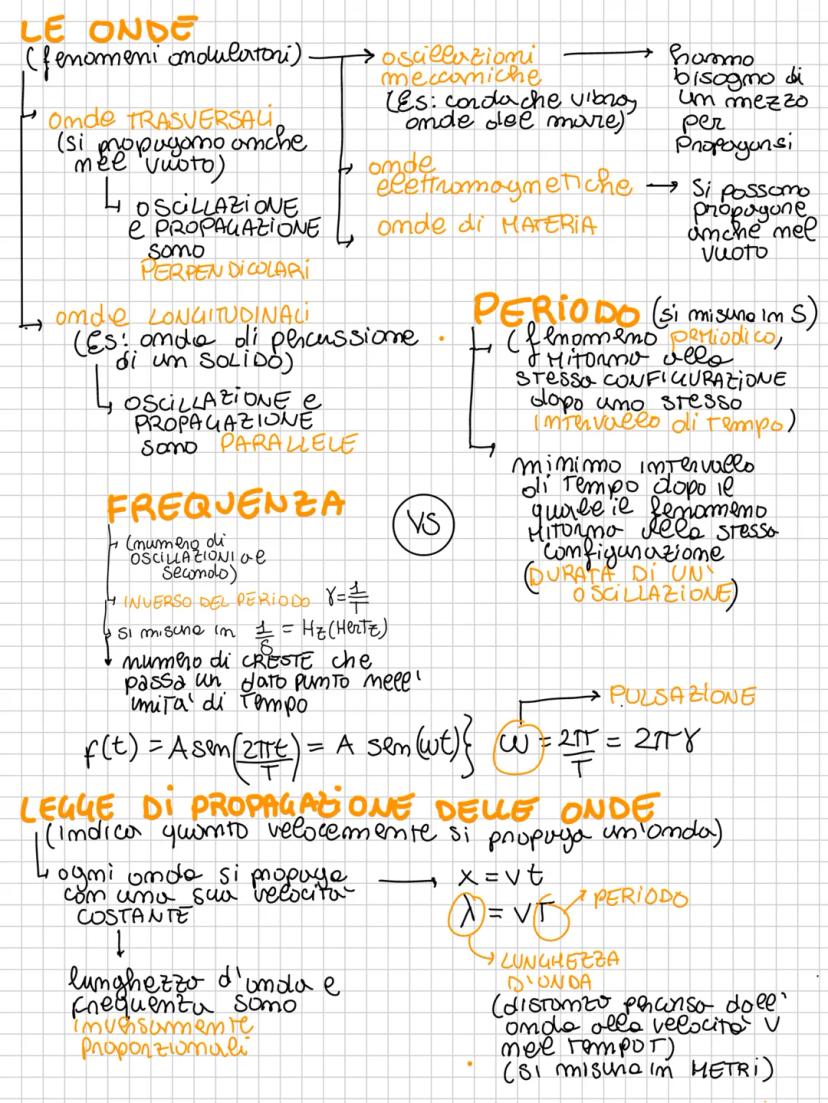 LE ONDE
(fenomeni ondulatori)
oscillazioni
meccaniche
(Es: corda che vibra,
onde del mare)
hanno
bisogno di
un mezzo
per
propagarsi
onde
elettromagnetiche
si possono
propagare
anche nel
vuoto
onde di MATERIA
onde TRASVERSALI
(si propagano anche
nel vuoto)
OSCILLAZIONE
e PROPAGAZIONE
sono
PERPENDICOLARI
onde LONGITUDINALI
(Es: onda di percussione
di un SOLIDO)
OSCILLAZIONE e
PROPAGAZIONE
sono PARALLELE
PERIODO (si misura in S)
(fenomeno periodico,
ritorna alla
stessa CONFIGURAZIONE
dopo uno stesso
intervallo di tempo)
minimo intervallo
di tempo dopo il
quale il fenomeno
ritorna alla stessa
configurazione
(DURATA DI UN'
OSCILLAZIONE)
FREQUENZA
VS
(numero di
OSCILLAZIONI al
secondo)
INVERSO DEL PERIODO γ=1/T
si misura in 1/s = Hz (Hertz)
numero di CRESTE che
passa un dato punto nell'
unità di tempo
PULSAZIONE
f(t) = A sen(2πt/T) = A sen(ωt)} ω = 2π/T = 2πγ
LEGGE DI PROPAGAZIONE DELLE ONDE
(indica quanto velocemente si propaga un'onda)
ogni onda si propaga
con una sua velocità
COSTANTE
x = vt
λ = vT
PERIODO
LUNGHEZZA
D'ONDA
(distanza percorsa dall'
onda alla velocità V
nel tempo T)
(si misura in METRI)
lunghezza d'onda e
frequenza sono
inversamente
proporzionali